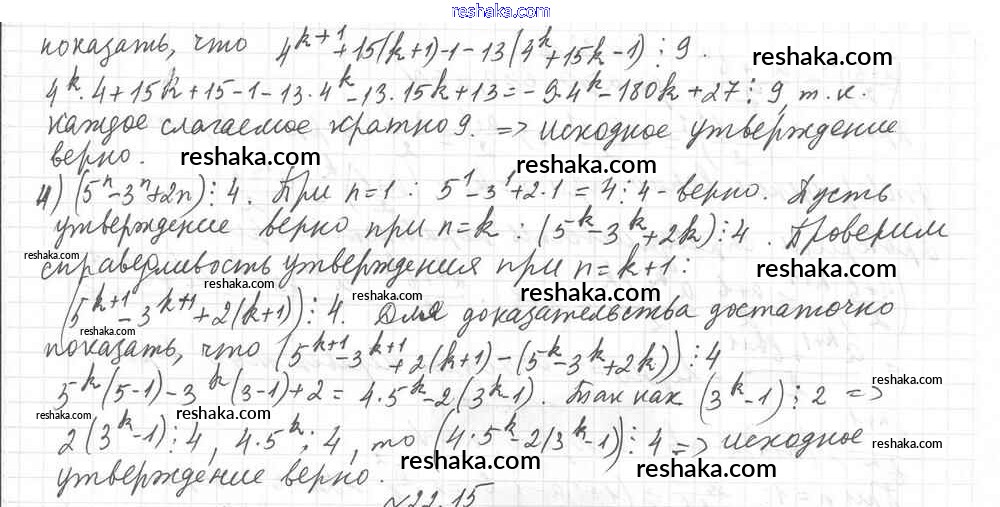 reshaka.com
показать, что 4^{k+1}+15(k+1)-1-13(4^k+15k-1)⋮9.
reshaka.com
4^k·4+15k+15-1-13·4^k-13·15k+13=-9·4^k-180k+27⋮9, т.к.
каждое слагаемое кратно 9. => исходное утверждение
верно.
reshaka.com
reshaka.com
4) (5^n-3^n+2n)⋮4. При n=1: 5^1-3^1+2·1=4⋮4-верно. Пусть
утверждение верно при n=k: (5^k-3^k+2k)⋮4. Проверим
reshaka.com
справедливость утверждения при n=k+1:
reshaka.com
reshaka.com
reshaka.com
reshaka.com
(5^{k+1}-3^{k+1}+2(k+1))⋮4. Для доказательства достаточно
reshaka.com
показать, что (5^{k+1}-3^{k+1}+2(k+1)-(5^k-3^k+2k))⋮4
5^k(5-1)-3^k(3-1)+2=4·5^k-2(3^k-1). Так как (3^k-1)⋮2 =>
reshaka.com
reshaka.com
reshaka.com
2(3^k-1)⋮4, 4·5^k⋮4, то (4·5^k-2(3^k-1))⋮4 => исходное
reshaka.com
reshaka.com
reshaka.com
утверждение верно.
№22.15